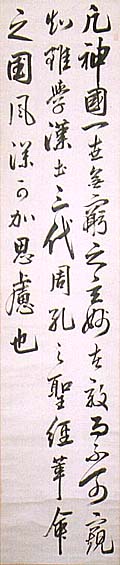 凡神國一世無窮之玄妙者敢而不可窺
知雖學漢土三代周孔之聖經革命
之国風深可加思慮也